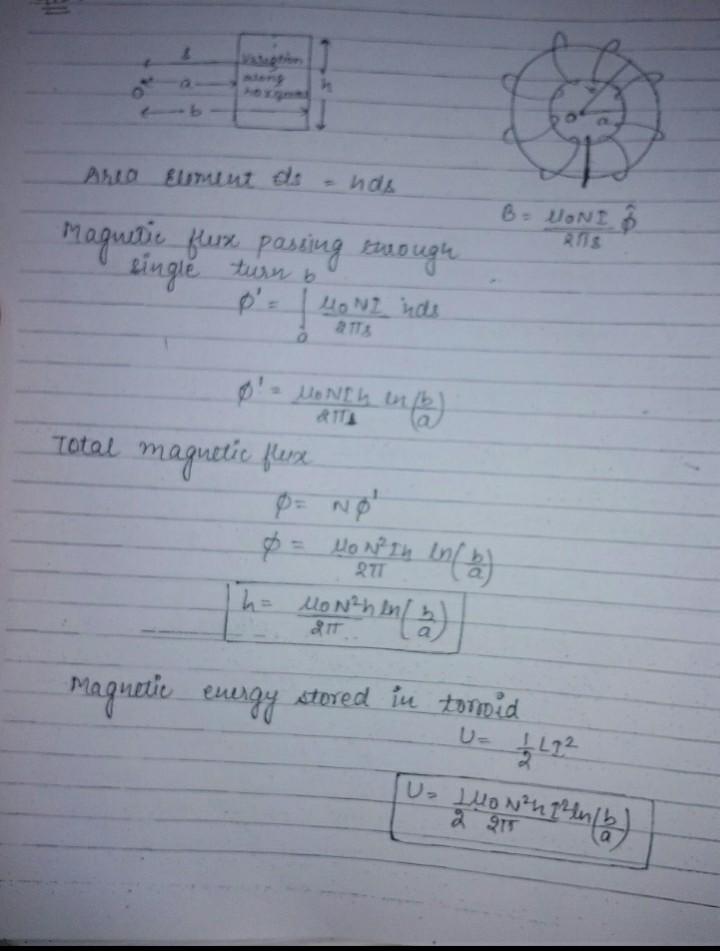 s
variation
along
a
h
O
b
O
a
Area Element ds = hds
B = μ₀NI/2πs φ̂
Magnetic flux passing through
single turn
φ' = ∫ₐᵇ μ₀NI/2πs hds
φ' = μ₀NIh/2π ln(b/a)
Total magnetic flux
φ = Nφ'
φ = μ₀N²Ih/2π ln(b/a)
L = μ₀N²h/2π ln(b/a)
Magnetic energy stored in torroid
U = 1/2 LI²
U = 1/2 μ₀N²hI²/2π ln(b/a)